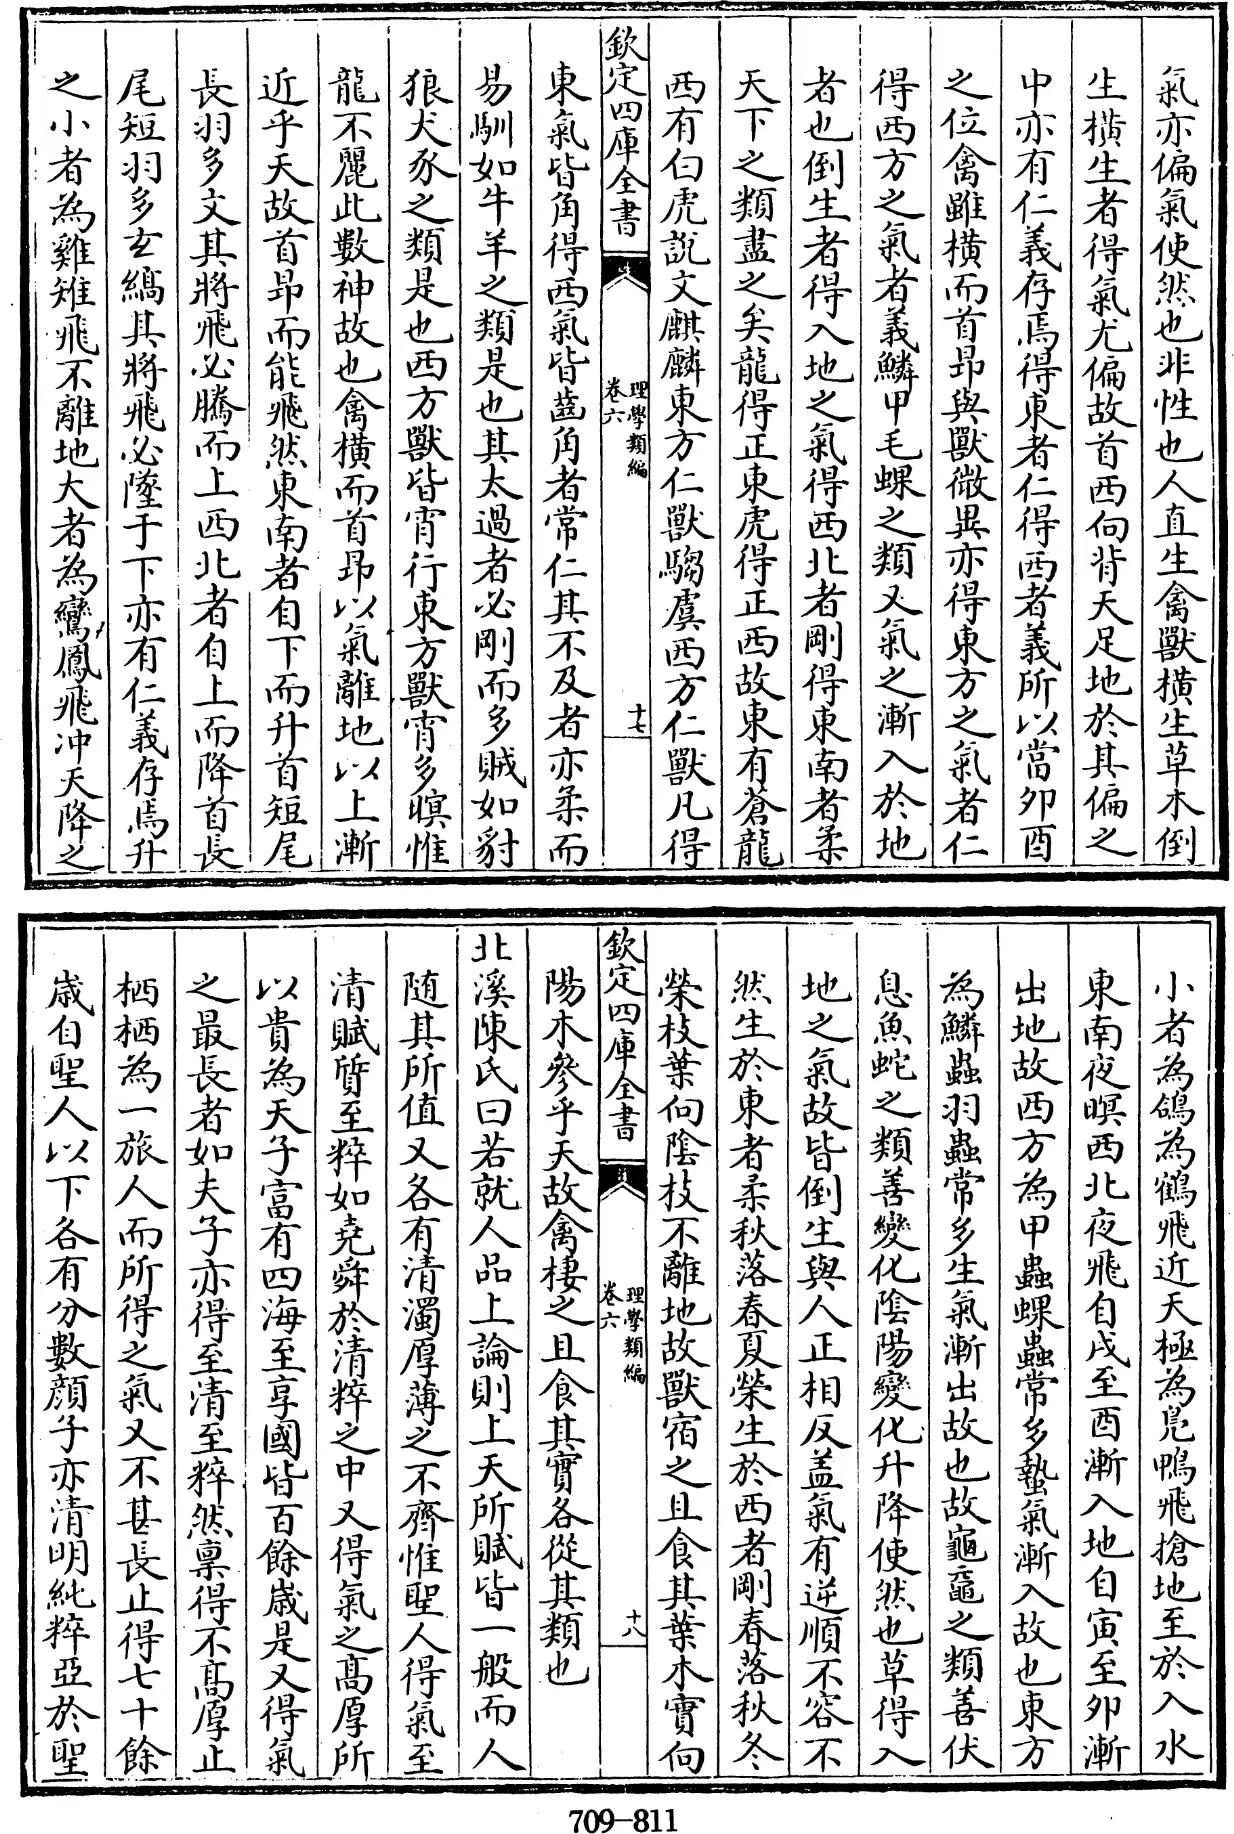 氣亦偏氣使然也非性也人直生禽獸橫生草木倒
生橫生者得氣尤偏故首西向背天足地於其偏之
中亦有仁義存焉得東者仁得西者義所以當夘酉
之位禽雖橫而首昂與獸微異亦得東方之氣者仁
得西方之氣者義鱗甲毛蜾之類又氣之漸入於地
者也倒生者得入地之氣得西北者剛得東南者柔
天下之類盡之矣龍得正東虎得正西故東有蒼龍
西有白虎說文麒麟東方仁獸騶虞西方仁獸凡得
欽定四庫全書
理學類編
卷六
十七
東氣皆角得西氣皆齒角者常仁其不及者亦柔而
易馴如牛羊之類是也其太過者必剛而多賊如豺
狼犬豕之類是也西方獸皆宵行東方獸宵多暝惟
龍不麗此數神故也禽橫而首昂以氣離地以上漸
近乎天故首昂而能飛然東南者自下而升首短尾
長羽多文其將飛必騰而上西北者自上而降首長
尾短羽多玄縞其將飛必墜于下亦有仁義存焉升
之小者為雞雉飛不離地大者為鸞鳳飛冲天降之
小者為鴿為鶴飛近天極為鳬鴨飛搶地至於入水
東南夜暝西北夜飛自戌至酉漸入地自寅至夘漸
出地故西方為甲蟲蜾蟲常多蟄氣漸入故也東方
為鱗蟲羽蟲常多生氣漸出故也故龜黿之類善伏
息魚蛇之類善變化陰陽變化升降使然也草得入
地之氣故皆倒生與人正相反盖氣有逆順不容不
然生於東者柔秋落春夏榮生於西者剛春落秋冬
榮枝葉向陰枝不離地故獸宿之且食其葉木實向
欽定四庫全書
理學類編
卷六
十八
陽木參乎天故禽棲之且食其實各從其類也
北溪陳氏曰若就人品上論則上天所賦皆一般而人
随其所值又各有清濁厚薄之不齊惟聖人得氣至
清賦質至粹如堯舜於清粹之中又得氣之高厚所
以貴為天子富有四海至享國皆百餘歲是又得氣
之最長者如夫子亦得至清至粹然稟得不高厚止
栖栖為一旅人而所得之氣又不甚長止得七十餘
歲自聖人以下各有分數顔子亦清明純粹亞於聖
709-811